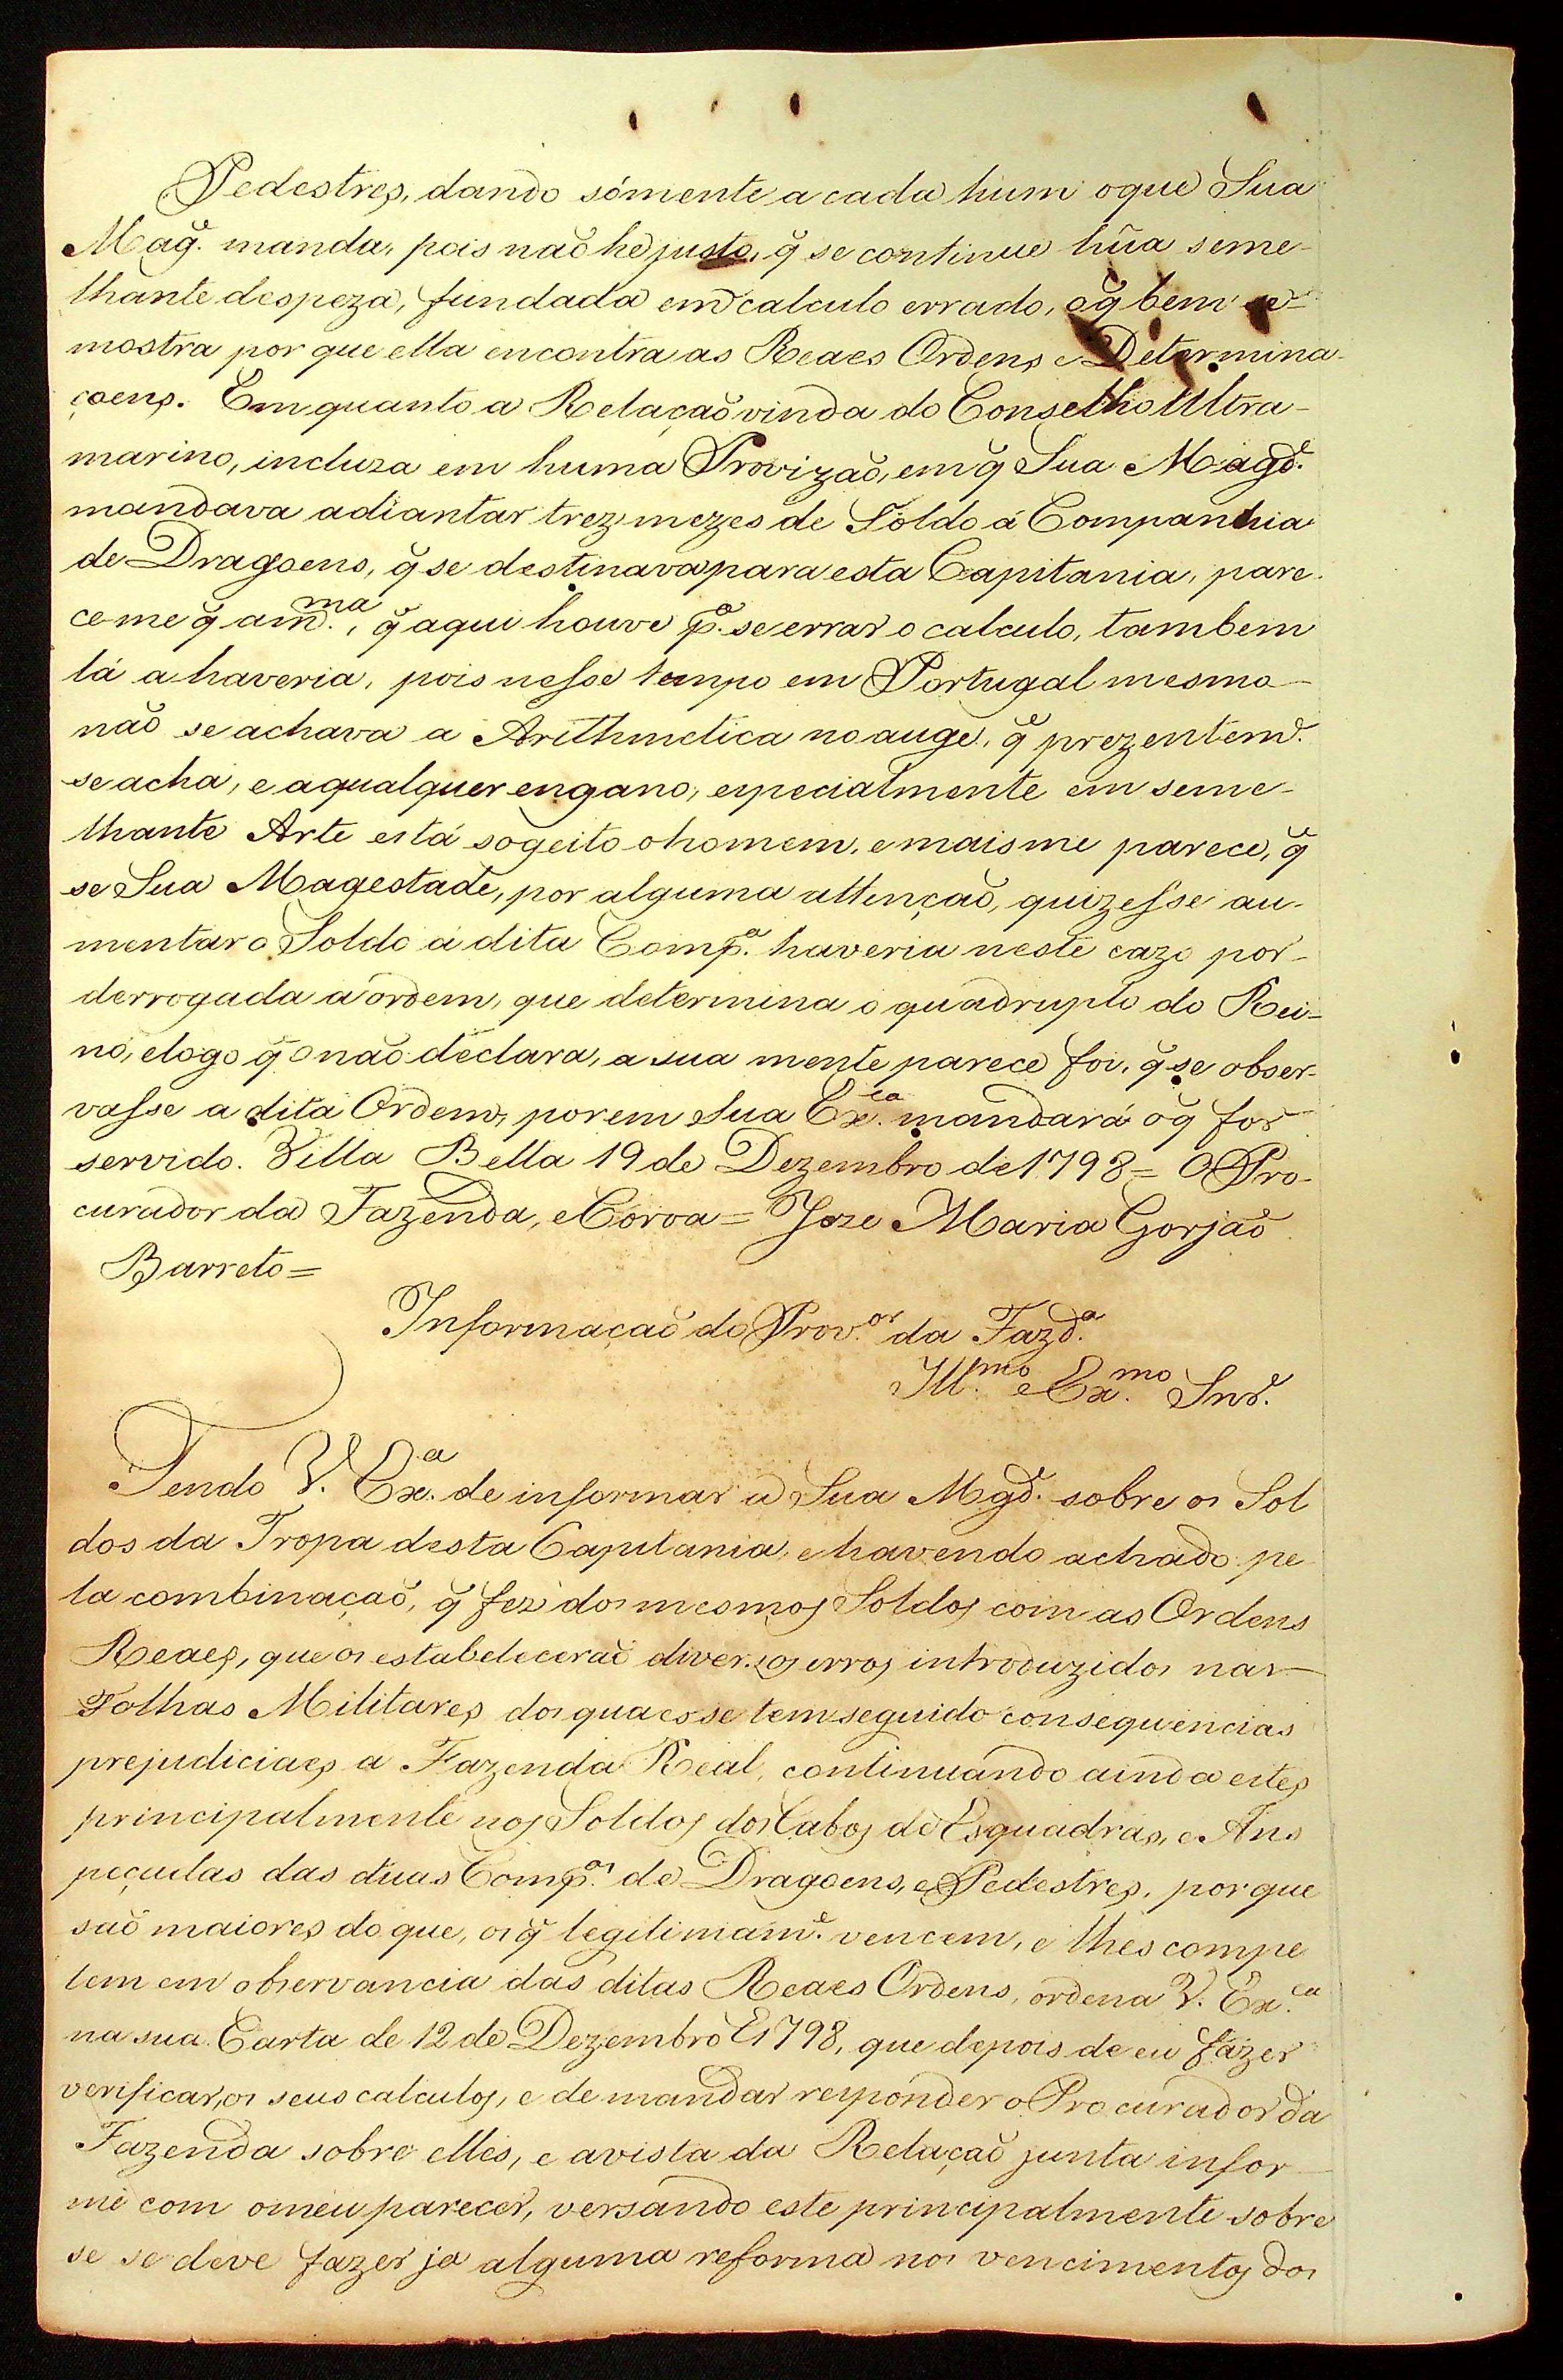 Pedestres, dando sómente a cada hum o que Sua
Mag.e manda, pois naõ he justo, q̃ se continue hũa seme-
lhante despeza, fundada em calculo errado, o q̃ bem se-
mostra por que ella encontra as Reaes Ordens e Determina-
çoens. Em quanto a Relaçaõ vinda do Conselho Ultra-
marino, incluza em huma Provizaõ, em q̃ Sua Magd.e
mandava adiantar trez mezes de Soldo á Companhia
de Dragoens, q̃ se destinava para esta Capitania, pare-
ceme q̃ a m.ma, q̃ aqui houve p.a se errar o calculo, tambem
lá a haveria, pois nesse tempo em Portugal mesmo
naõ se achava a Arithmetica no auge, q̃ prezentem.e
se acha, e a qualquer engano, especialmente em seme-
lhante Arte está sogeito o homem, e mais me parece, q̃
se Sua Magestade, por alguma attençaõ, quizesse au-
mentar o Soldo á dita Comp.a haveria neste cazo por-
derrogada a ordem, que determina o quadruplo do Rei-
no, e logo q̃ o naõ declara, a sua mente parece foi, q̃ se obser-
vasse a dita Ordem, porem Sua Ex.ca mandará o q̃ for
servido. Villa Bella 19 de Dezembro de 1798 = O Pro-
curador da Fazenda, e Coroa = Joze Maria Gorjaõ
Barreto =
Informaçaõ do Prov.or da Fazd.a
Ill.mo e Ex.mo Snr.
Tendo V. Ex.a de informar a Sua Mgd.e sobre os Sol
dos da Tropa desta Capitania, e havendo achado pe
la combinaçaõ, q̃ fez dos mesmos Soldos com as Ordens
Reaes, que os estabeleceraõ diversos erros introduzidos nas
Folhas Militares, dos quaes se tem seguido consequencias
prejudiciaes a Fazenda Real, continuando ainda estes
principalmente nos Soldos dos Cabos de Esquadras, e Ans
peçadas das duas Comp.as de Dragoens, e Pedestres, porque
saõ maiores do que, os q̃ legitimam.e vencem, e lhes compe
tem em observancia das ditas Reaes Ordens, ordena V. Ex.ca
na sua Carta de 12 de Dezembro de 1798, que depois de eu fazer
verificar, os seus calculos, e de mandar responder o Procurador da
Fazenda sobre elles, e avista da Relaçaõ junta infor
me com o meu parecer, versando este principalmente sobre
se se deve fazer ja alguma reforma nos vencimentos dos